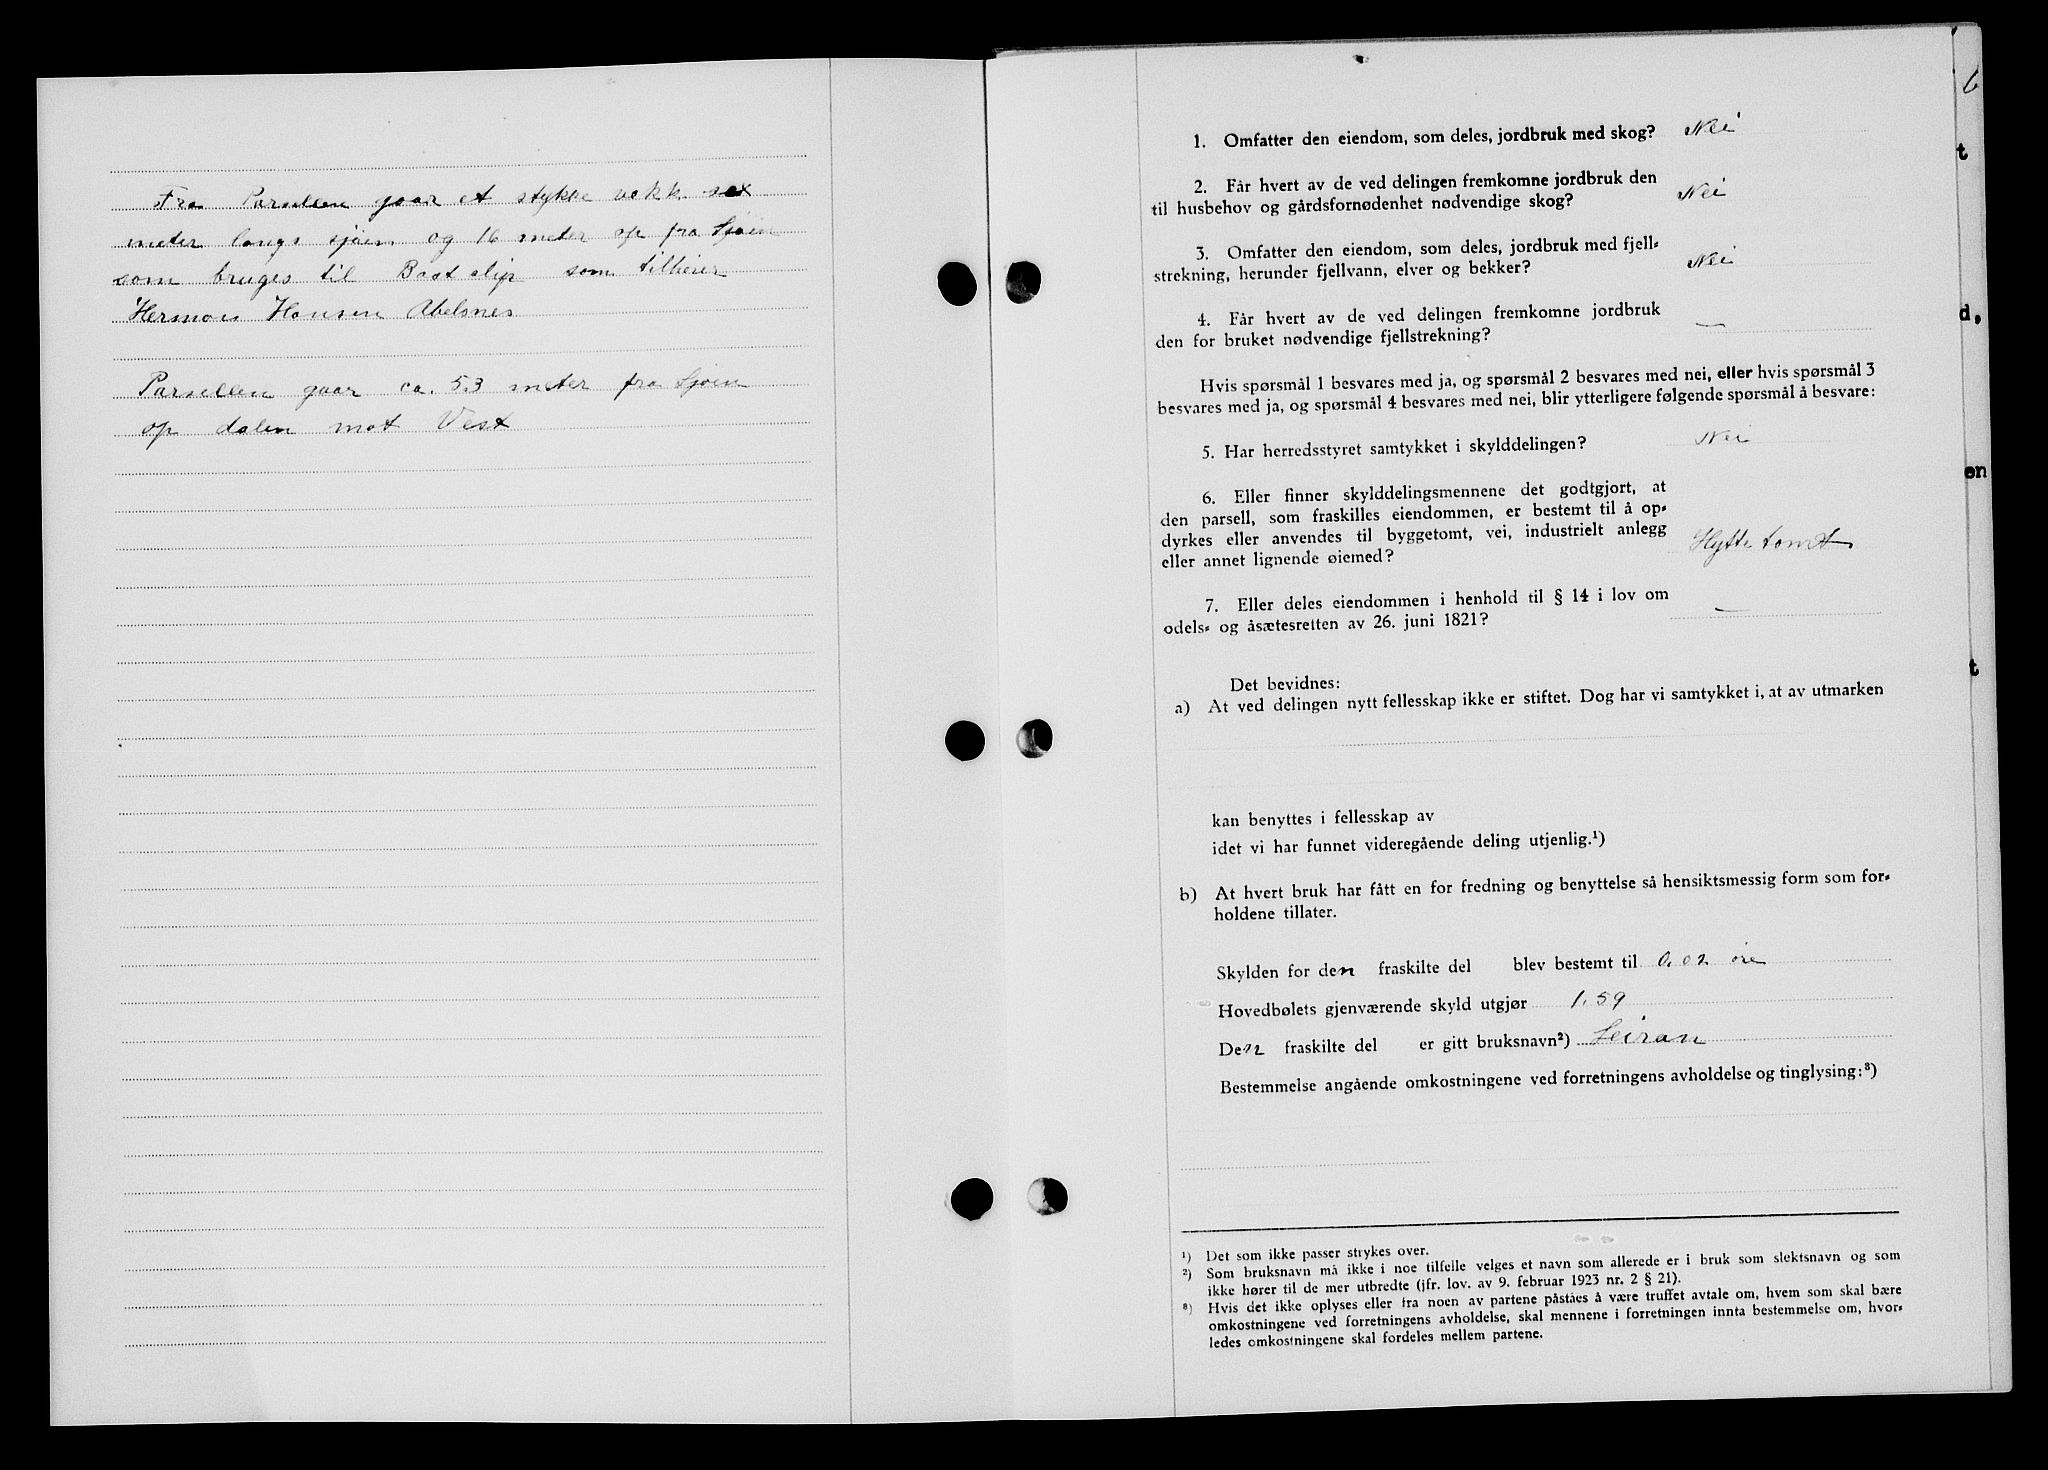 Fra Parsellen gaar et stykke vekk sex
meter langs sjøen og 16 meter op fra Sjøen
som bruges til Baat slip som tilhører
Herman Hansen Abelsnes
Parsellen gaar ca. 53 meter fra Sjøen
op dalen mot Vest
6
t
d,
en
t
1. Omfatter den eiendom, som deles, jordbruk med skog? Nei
2. Får hvert av de ved delingen fremkomne jordbruk den
til husbehov og gårdsfornødenhet nødvendige skog? Nei
3. Omfatter den eiendom, som deles, jordbruk med fjell-
strekning, herunder fjellvann, elver og bekker? Nei
4. Får hvert av de ved delingen fremkomne jordbruk
den for bruket nødvendige fjellstrekning? —
Hvis spørsmål 1 besvares med ja, og spørsmål 2 besvares med nei, eller hvis spørsmål 3
besvares med ja, og spørsmål 4 besvares med nei, blir ytterligere følgende spørsmål å besvare:
5. Har herredsstyret samtykket i skylddelingen? Nei
6. Eller finner skylddelingsmennene det godtgjort, at
den parsell, som fraskilles eiendommen, er bestemt til å op-
dyrkes eller anvendes til byggetomt, vei, industrielt anlegg
eller annet lignende øiemed? Hytte tomt
7. Eller deles eiendommen i henhold til § 14 i lov om
odels- og åsætesretten av 26. juni 1821? —
Det bevidnes:
a) At ved delingen nytt fellesskap ikke er stiftet. Dog har vi samtykket i, at av utmarken
kan benyttes i fellesskap av
idet vi har funnet videregående deling utjenlig.¹)
b) At hvert bruk har fått en for fredning og benyttelse så hensiktsmessig form som for-
holdene tillater.
Skylden for den fraskilte del blev bestemt til 0.02 øre
Hovedbølets gjenværende skyld utgjør 1.59
Den fraskilte del er gitt bruksnavn²) Leiran
Bestemmelse angående omkostningene ved forretningens avholdelse og tinglysing:³)
¹) Det som ikke passer strykes over.
²) Som bruksnavn må ikke i noe tilfelle velges et navn som allerede er i bruk som slektsnavn og som
ikke hører til de mer utbredte (jfr. lov. av 9. februar 1923 nr. 2 § 21).
³) Hvis det ikke oplyses eller fra noen av partene påståes å være truffet avtale om, hvem som skal bære
omkostningene ved forretningens avholdelse, skal mennene i forretningen innta bestemmelse om, hvor-
ledes omkostningene skal fordeles mellem partene.